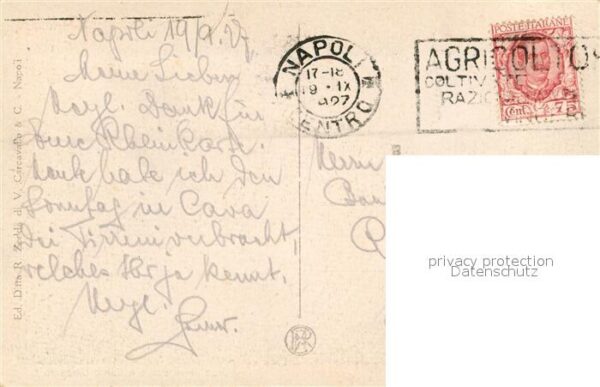 Napoli 19/9.27.
Meine Lieben
Herzl. Dank für
Eure Rheinkarte.
habe ich den
Sonntag in Cava
dei Tirreni verbracht,
welches Ihr ja kennt.
Herzl.
Ed. Ditta R. Zedda di V. Carcavallo & C. Napoli
NAPOLI
17-18
19 · IX
1927
CENTRO
AGRICOLTO
COLTIVATE
RAZIO
POSTE ITALIANE
Cent. 75
Herrn
privacy protection
Datenschutz